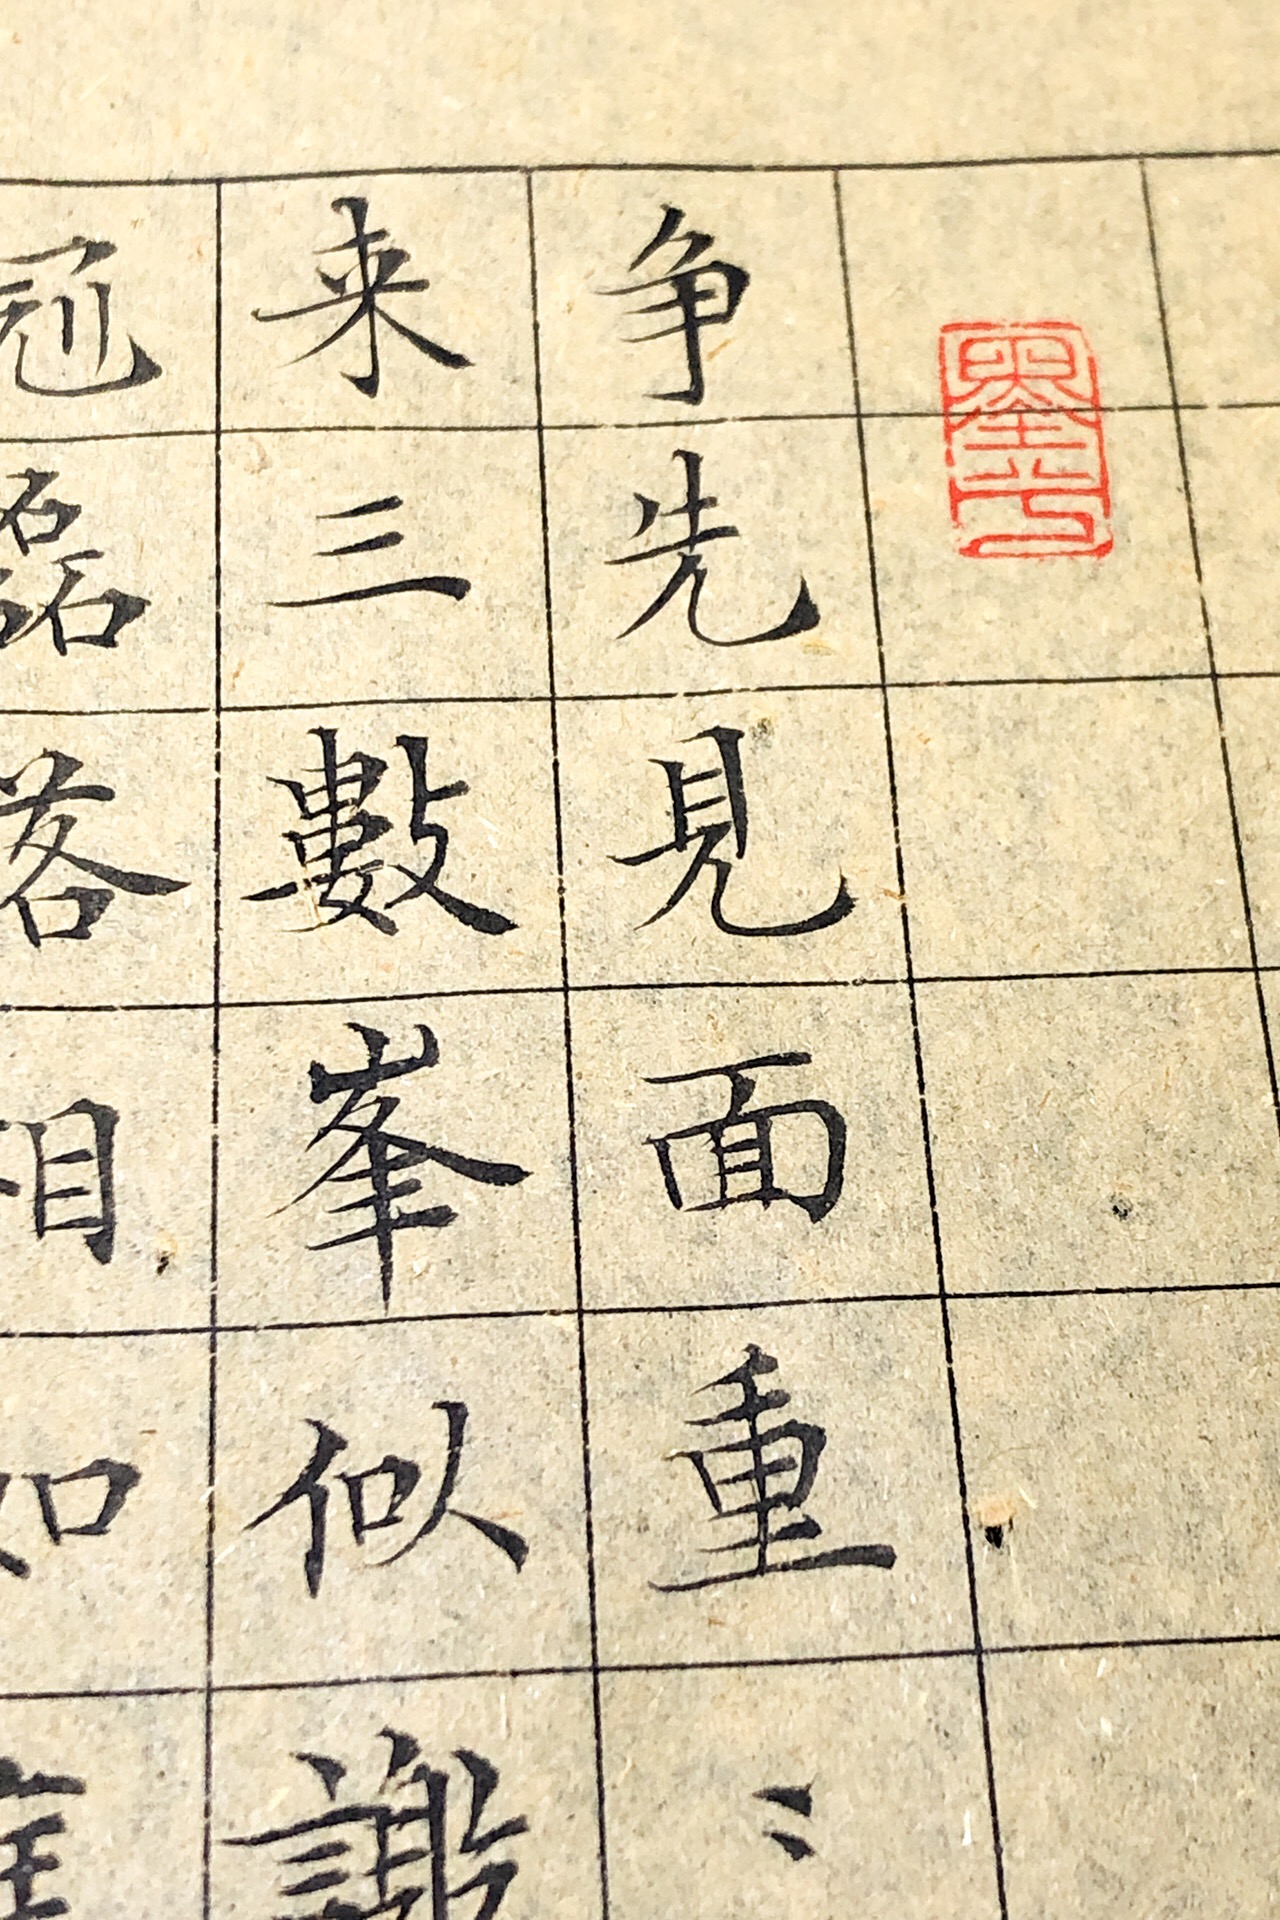 墨
争先見面重〻
来三數峯似謝
冠磊落相如庭